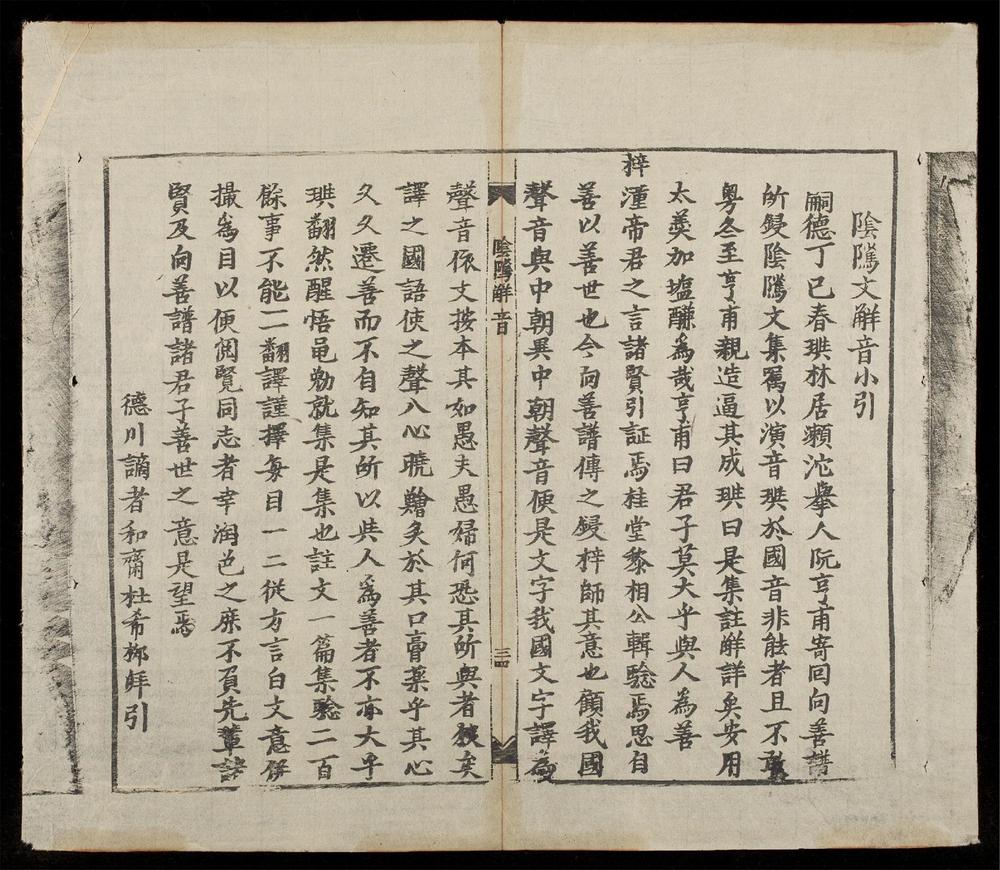 陰隲文解音小引
嗣德丁巳春琪林居瀨沱舉人阮亨甫寄回向善譜
所鋟陰隲文集寫以演音琪於國音非能者且不敢
粤冬至亨甫親造逼其成琪曰是集註解詳矣安用
太羹加塩醾為哉亨甫曰君子莫大乎與人為善
梓潼帝君之言諸賢引証焉桂堂黎相公輯驗焉思自
善以善世也今向善譜傳之鋟梓師其意也顧我國
聲音與中朝異中朝聲音便是文字我國文字譯為
陰隲解音
三四
聲音依文按本其如愚夫愚婦何恐其所與者狹矣
譯之國語使之聲入心曉鱠炙於其口膏藥乎其心
久久遷善而不自知其所以此人為善者不亦大乎
琪翻然醒悟黽勉就集是集也註文一篇集驗二百
餘事不能一一翻譯謹擇每目一二從方言白文意倂
撮為目以便閱覽同志者幸润色之庶不負先輩諸
賢及向善譜諸君子善世之意是望焉
德川謫者和齋杜希栁拜引